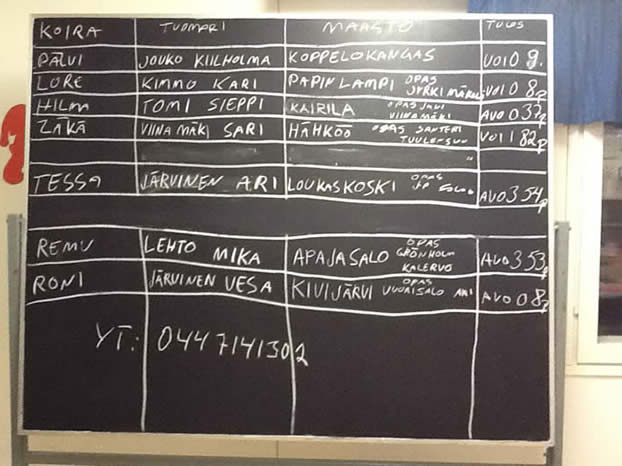 KOIRA TUOMARI MAASTO TULOS
PÄIVI JOUKO KIILHOLMA KOPPELOKANGAS VOI0 9.
LORE KIMMO KARI PAPINLAMPI OPAS JYRKI VOI0 8p
HILMA TOMI SIEPPI KAIRILA OPAS JALI VIINAMÄKI AVO 0 37p
ZÄKÄ VIINAMÄKI SARI HÄHKÖÖ OPAS SANTERI VOI1 82p
TESSA JÄRVINEN ARI LOUKASKOSKI OPAS JP AVO3 54p
REMU LEHTO MIKA APAJASALO OPAS GRÖNHOLM KALERVO AVO3 53p
RONI JÄRVINEN VESA KIVIJÄRVI OPAS VUORISALO AKI AVO 0 8p
YT: 0447141302